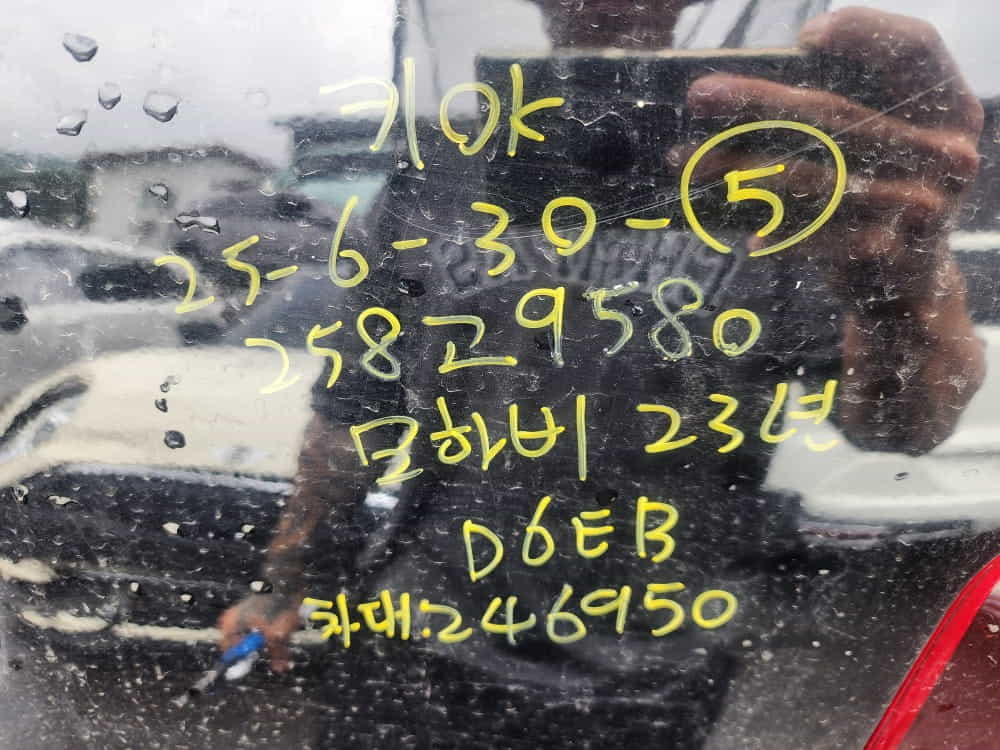 키OK
25-6-30-5
258고9580
모하비 23년
D6EB
차대:246950